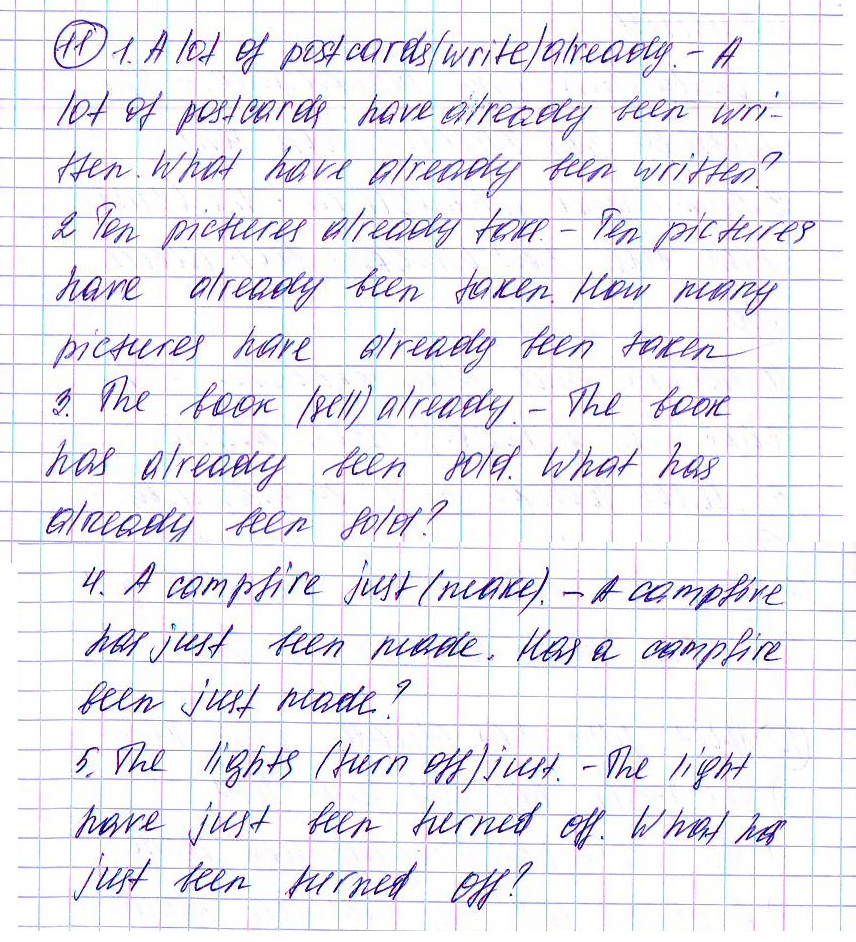 11 1. A lot of postcards (write) already. - A
lot of postcards have already been wri-
tten. What have already been written?
2 Ten pictures already take. - Ten pictures
have already been taken. How many
pictures have already been taken
3. The book (sell) already. - The book
has already been sold. What has
already been sold?
4. A campfire just (make). - A campfire
has just been made. Has a campfire
been just made?
5. The lights (turn off) just. - The light
have just been turned off. What has
just been turned off?